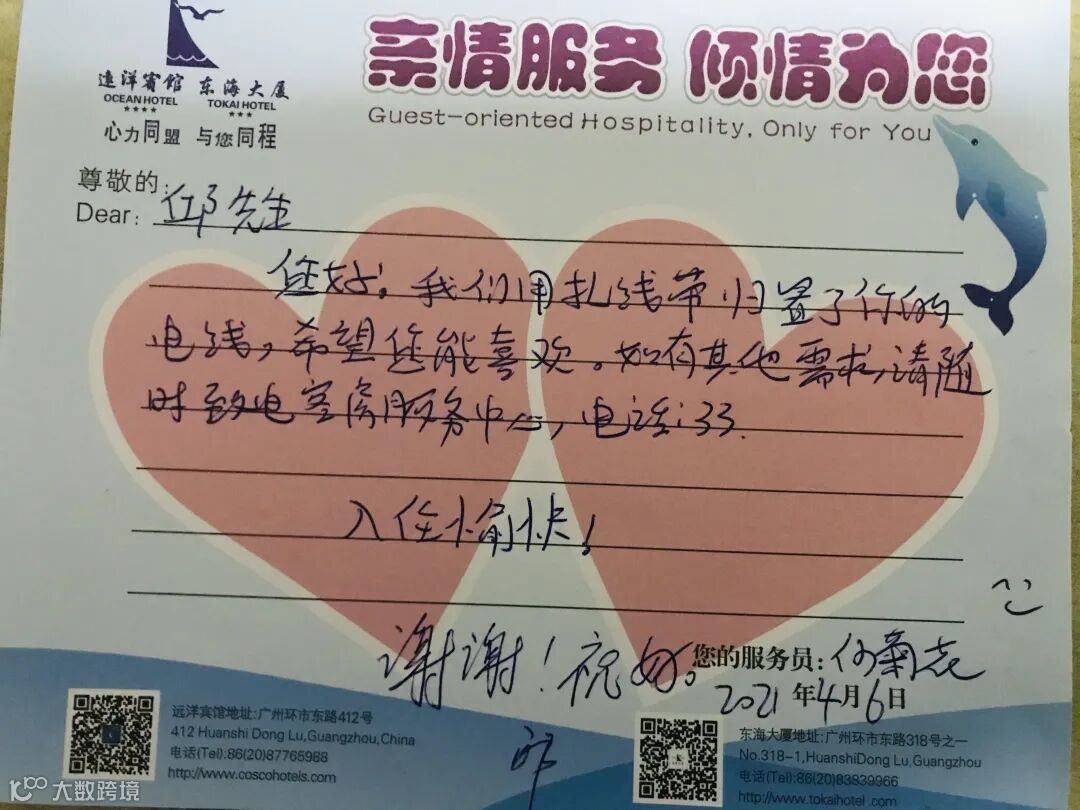 亲情服务 倾情为您
Guest-oriented Hospitality, Only for You
远洋宾馆 东海大厦
OCEAN HOTEL TOKAI HOTEL
★★★★ ★★★
心力同盟 与您同程
尊敬的:
Dear: 邱先生
您好!我们用扎线带归置了你的
电线,希望您能喜欢。如有其他需求,请随
时致电客房服务中心,电话:33.
入住愉快!
谢谢!祝好。
您的服务员:何菊志
2021年4月6日
远洋宾馆地址:广州环市东路412号
412 Huanshi Dong Lu,Guangzhou,China
电话(Tel):86(20)87765988
http://www.coscohotels.com
东海大厦地址:广州环市东路318号之一
No.318-1,HuanshiDong Lu,Guangzhou
电话(Tel):86(20)83839966
http://www.tokaihotel.com
大数跨境